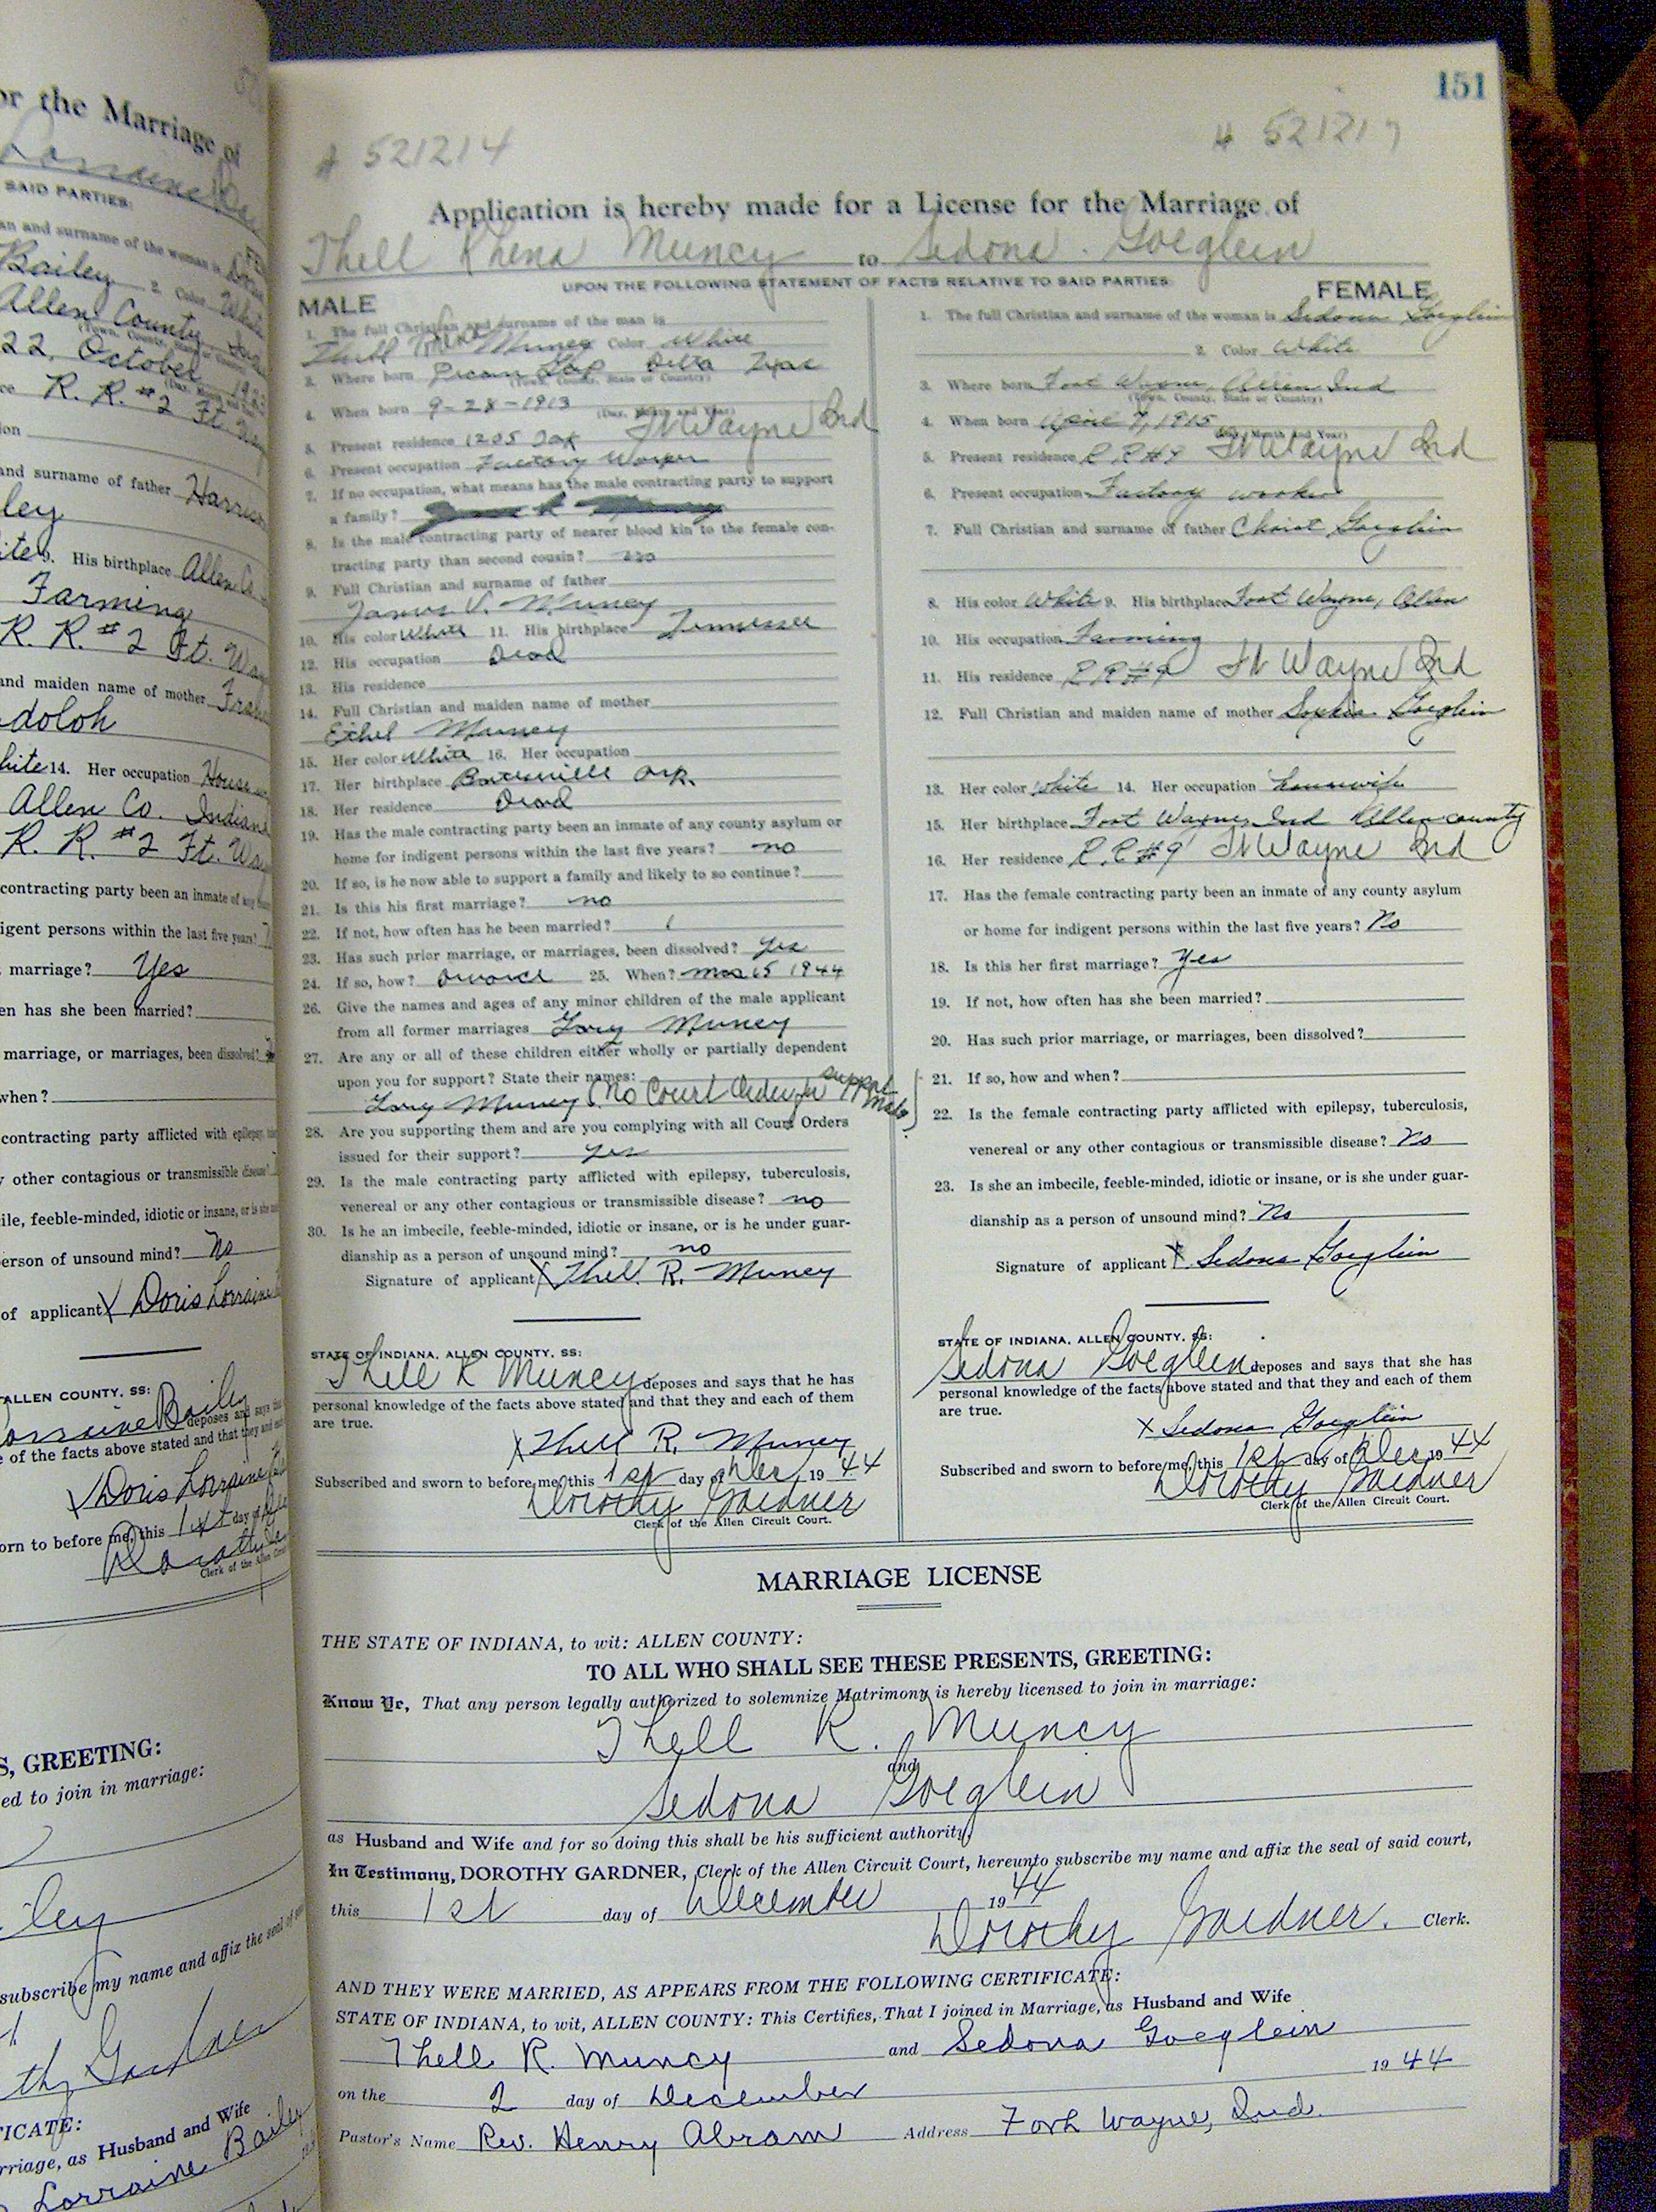 or the Marriage of
Lorraine
SAID PARTIES:
an and surname of the woman is
Bailey 2. Color White
Allen County
(Town, County, State or
22, October
ce R. R. #2 Ft.
ion
and surname of father
ley
9. His birthplace Allen
Farming
R. R. #2 Ft.
and maiden name of mother
14. Her occupation
Allen Co. Indiana
R. R. #2 Ft.
contracting party been an inmate of any
igent persons within the last five years?
marriage? Yes
en has she been married?
marriage, or marriages, been dissolved?
when?
contracting party afflicted with epilepsy,
y other contagious or transmissible disease?
ile, feeble-minded, idiotic or insane, or is she
erson of unsound mind? No
of applicant X Doris Lorraine
ALLEN COUNTY, SS:
Lorraine Bailey
deposes and says
e of the facts above stated and that they and each
X Doris Lorraine
orn to before me, this 1st day of
Clerk of the Allen
S, GREETING:
ed to join in marriage:
ley
subscribe my name and affix the seal of
FICATE:
rriage, as Husband and Wife
Lorraine Bailey
151
# 521214
# 521217
Application is hereby made for a License for the Marriage of
Thell Rhena Muncy to Sedona Goeglein
UPON THE FOLLOWING STATEMENT OF FACTS RELATIVE TO SAID PARTIES:
MALE
1. The full Christian and surname of the man is
Thell Rhena Muncy Color White
3. Where born Pecan Gap Delta Texas
(Town, County, State or Country)
4. When born 9-28-1913
(Day, Month and Year)
5. Present residence 1205 Ft Wayne Ind
6. Present occupation Factory Worker
7. If no occupation, what means has the male contracting party to support
a family?
8. Is the male contracting party of nearer blood kin to the female con-
tracting party than second cousin? no
9. Full Christian and surname of father
James V. Muncy
10. His color White 11. His birthplace Tennessee
12. His occupation Dead
13. His residence
14. Full Christian and maiden name of mother
Ethel Muncy
15. Her color White 16. Her occupation
17. Her birthplace Batesville Ark.
18. Her residence Dead
19. Has the male contracting party been an inmate of any county asylum or
home for indigent persons within the last five years? no
20. If so, is he now able to support a family and likely to so continue?
21. Is this his first marriage? no
22. If not, how often has he been married? 1
23. Has such prior marriage, or marriages, been dissolved? yes
24. If so, how? Divorce 25. When? 1944
26. Give the names and ages of any minor children of the male applicant
from all former marriages Gory Muncy
27. Are any or all of these children either wholly or partially dependent
upon you for support? State their names:
Gory Muncy (No Court Order for support made)
28. Are you supporting them and are you complying with all Court Orders
issued for their support? yes
29. Is the male contracting party afflicted with epilepsy, tuberculosis,
venereal or any other contagious or transmissible disease? no
30. Is he an imbecile, feeble-minded, idiotic or insane, or is he under guar-
dianship as a person of unsound mind? no
Signature of applicant X Thell R. Muncy
STATE OF INDIANA, ALLEN COUNTY, SS:
Thell R Muncy deposes and says that he has
personal knowledge of the facts above stated and that they and each of them
are true.
X Thell R. Muncy
Subscribed and sworn to before me, this 1st day of Dec, 19 44
Dorothy Gardner
Clerk of the Allen Circuit Court.
FEMALE
1. The full Christian and surname of the woman is Sedona Goeglein
2. Color White
3. Where born Fort Wayne, Allen Ind
(Town, County, State or Country)
4. When born April 7, 1915
(Day, Month and Year)
5. Present residence R R #9 Ft Wayne Ind
6. Present occupation Factory worker
7. Full Christian and surname of father Christ Goeglein
8. His color White 9. His birthplace Fort Wayne, Allen
10. His occupation Farming
11. His residence R R #9 Ft Wayne Ind
12. Full Christian and maiden name of mother Sophia Goeglein
13. Her color White 14. Her occupation housewife
15. Her birthplace Fort Wayne, Ind Allen county
16. Her residence R R #9 Ft Wayne Ind
17. Has the female contracting party been an inmate of any county asylum
or home for indigent persons within the last five years? No
18. Is this her first marriage? Yes
19. If not, how often has she been married?
20. Has such prior marriage, or marriages, been dissolved?
21. If so, how and when?
22. Is the female contracting party afflicted with epilepsy, tuberculosis,
venereal or any other contagious or transmissible disease? No
23. Is she an imbecile, feeble-minded, idiotic or insane, or is she under guar-
dianship as a person of unsound mind? No
Signature of applicant X Sedona Goeglein
STATE OF INDIANA, ALLEN COUNTY, SS:
Sedona Goeglein deposes and says that she has
personal knowledge of the facts above stated and that they and each of them
are true.
X Sedona Goeglein
Subscribed and sworn to before me, this 1st day of Dec, 19 44
Dorothy Gardner
Clerk of the Allen Circuit Court.
MARRIAGE LICENSE
THE STATE OF INDIANA, to wit: ALLEN COUNTY:
TO ALL WHO SHALL SEE THESE PRESENTS, GREETING:
Know Ye, That any person legally authorized to solemnize Matrimony is hereby licensed to join in marriage:
Thell R. Muncy
and
Sedona Goeglein
as Husband and Wife and for so doing this shall be his sufficient authority.
In Testimony, DOROTHY GARDNER, Clerk of the Allen Circuit Court, hereunto subscribe my name and affix the seal of said court,
this 1st day of December 19 44
Dorothy Gardner. Clerk.
AND THEY WERE MARRIED, AS APPEARS FROM THE FOLLOWING CERTIFICATE:
STATE OF INDIANA, to wit, ALLEN COUNTY: This Certifies, That I joined in Marriage, as Husband and Wife
Thell R. Muncy and Sedona Goeglein
on the 2 day of December 19 44
Pastor's Name Rev. Henry Abram Address Fort Wayne, Ind.